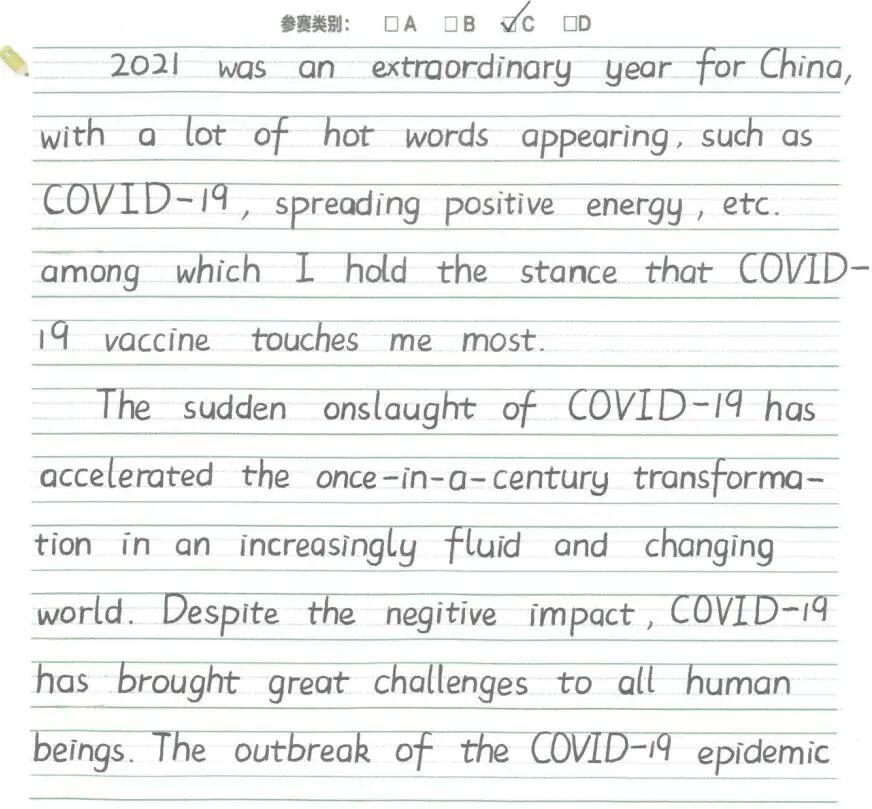 参赛类别: □A □B ☑C □D
2021 was an extraordinary year for China,
with a lot of hot words appearing, such as
COVID-19, spreading positive energy, etc.
among which I hold the stance that COVID-
19 vaccine touches me most.
The sudden onslaught of COVID-19 has
accelerated the once-in-a-century transforma-
tion in an increasingly fluid and changing
world. Despite the negitive impact, COVID-19
has brought great challenges to all human
beings. The outbreak of the COVID-19 epidemic